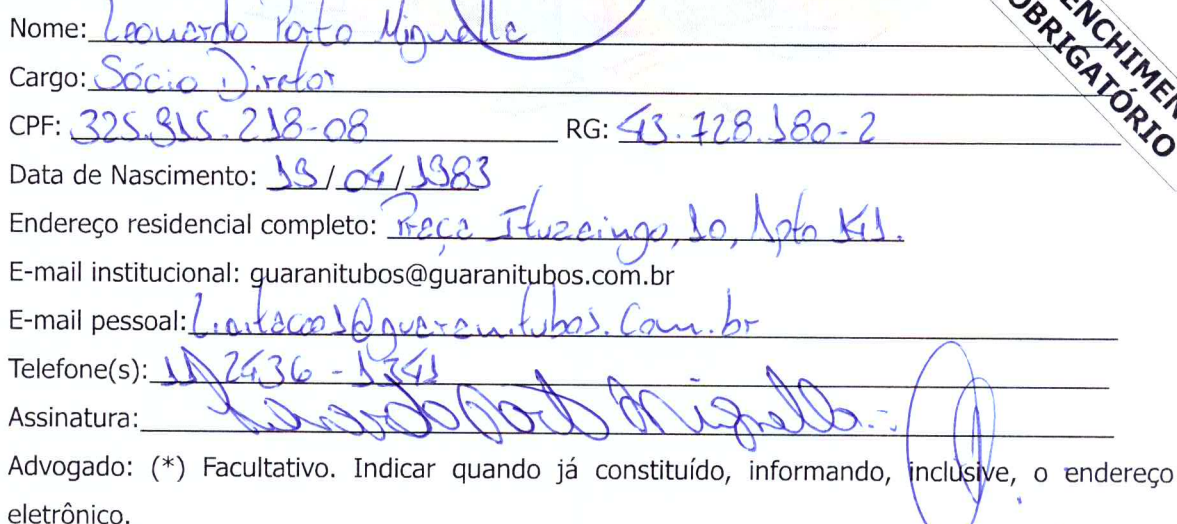 Nome: Leonardo Porto Mignella
ENCHIMEN
OBRIGATÓRIO
Cargo: Sócio Diretor
CPF: 325.915.218-08 RG: 43.728.180-2
Data de Nascimento: 19/04/1983
Endereço residencial completo: Praça Ituzaingo, 10, Apto 141.
E-mail institucional: guaranitubos@guaranitubos.com.br
E-mail pessoal: Licitacao1@guaranitubos.com.br
Telefone(s): 11 2436-1341
Assinatura: Leonardo Porto Mignella
Advogado: (*) Facultativo. Indicar quando já constituído, informando, inclusive, o endereço
eletrônico.